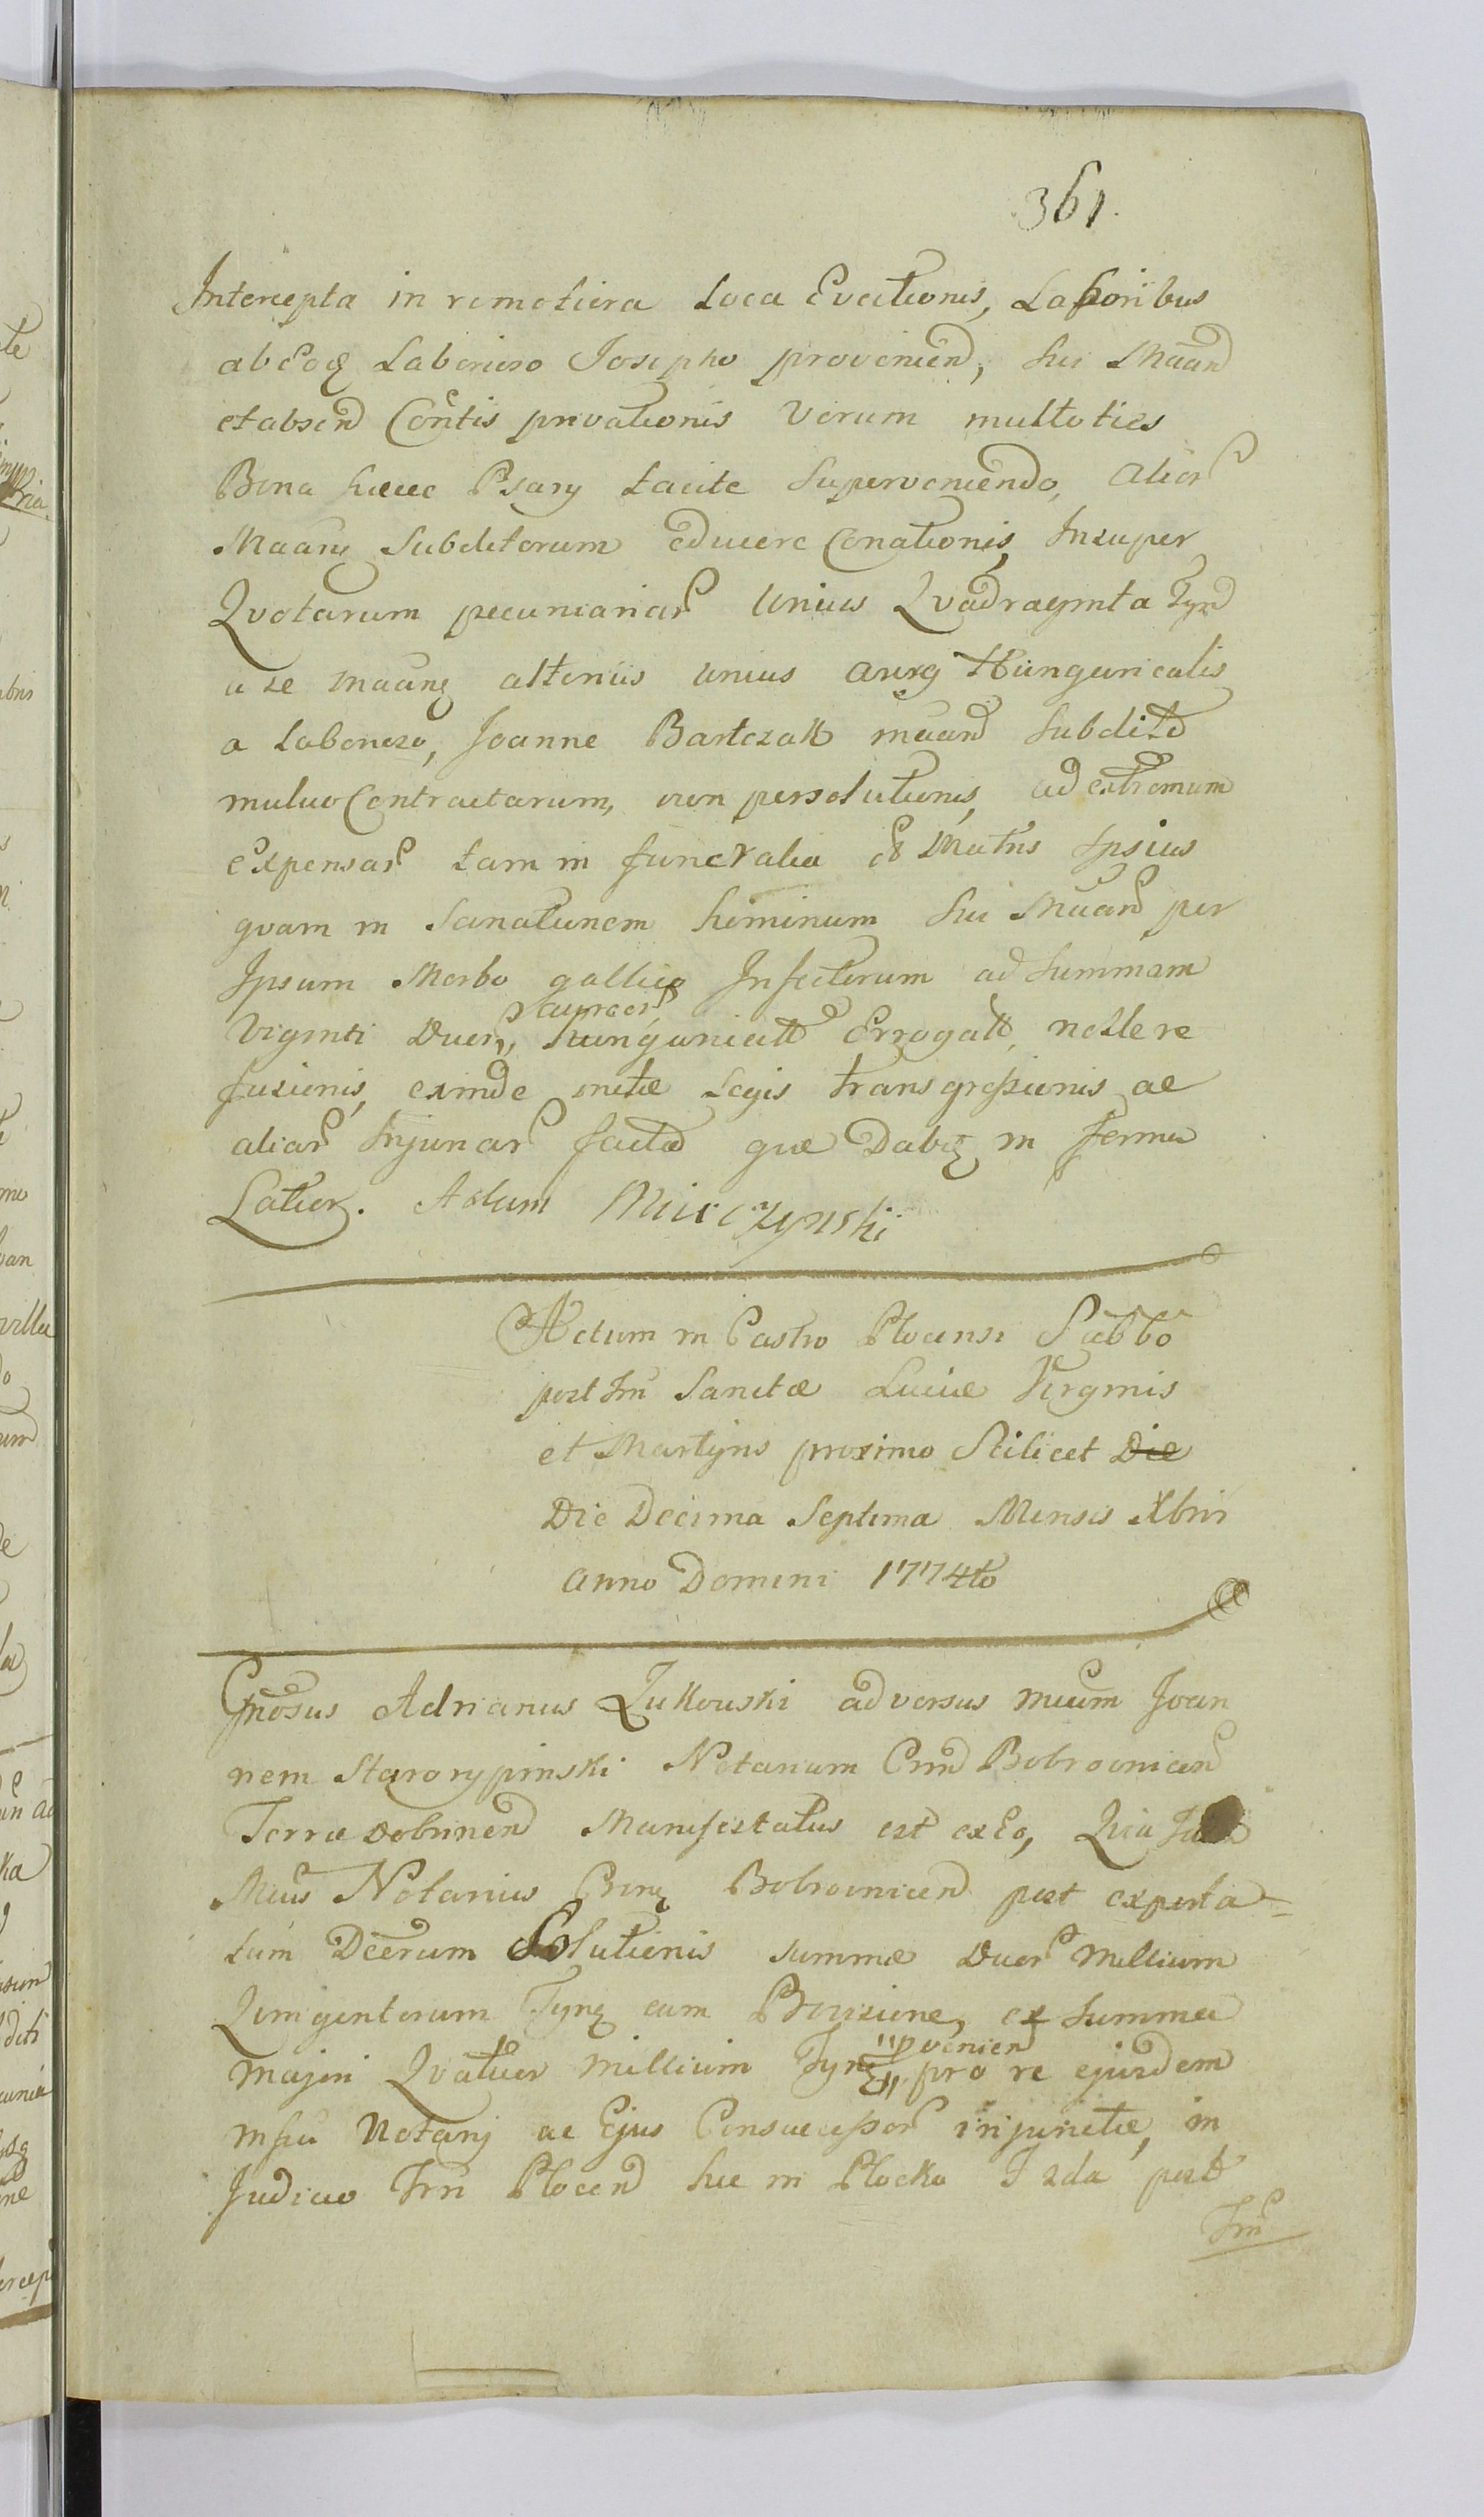 361.
Intercepta in remotiora Loca Evectionis, Laboribus
ab eoq Laborioso Josepho provenien, sui Maan
et absen Contis privationis Verum multoties
Bona haec Psary tacite Superveniendo, alior
Maang Subditorum educere Conationis, Insuper
Qvotarum pecuniariar Unius Qvadraginta Tyn
a se Maang alterius unius aurej Hungaricalis
a Laborioso, Joanne Bartczak maan Subdito
mutuo Contractarum, non persolutionis, ad extremum
expensar tam in funeralia Matris Ipsius
qvam in Sanationem hominum sui Maan per
Ipsum Morbo gallico Infectorum ad Summam
aureor
Viginti Duor, Hungaricalt Errogatt, nolle re
fusionis, exinde metae Legis transgressionis ac
aliar Injuriar factae qvae Dabit in forma
Latior. Adam Mirczynski
Actum in Castro Plocensi Sabbo
post Frn Sanctae Luciae Virginis
et Martyris proximo Scilicet Die
Die Decima Septima Mensis Xbris
Anno Domini 1774to
Gnosus Adrianus Zukowski adversus Mcum Joan
nem Starorypinski Notarium Crm Bobrownicen
Terrae Dobrinen Manifestatus est ex eo, Qvia
Mcus Notarius Bobrownicen post expecta=
tum Decrum Solutionis summae Duor Millium
Qvingentorum Tynf cum Provisione, ex Summa
provenien
majori Qvatuor Millium Tynf pro re ejusdem
Mfci Notarij ac Ejus Consuccessor injunctae, in
Judicio Trri Plocen hic in Plocko Fda post
Frn